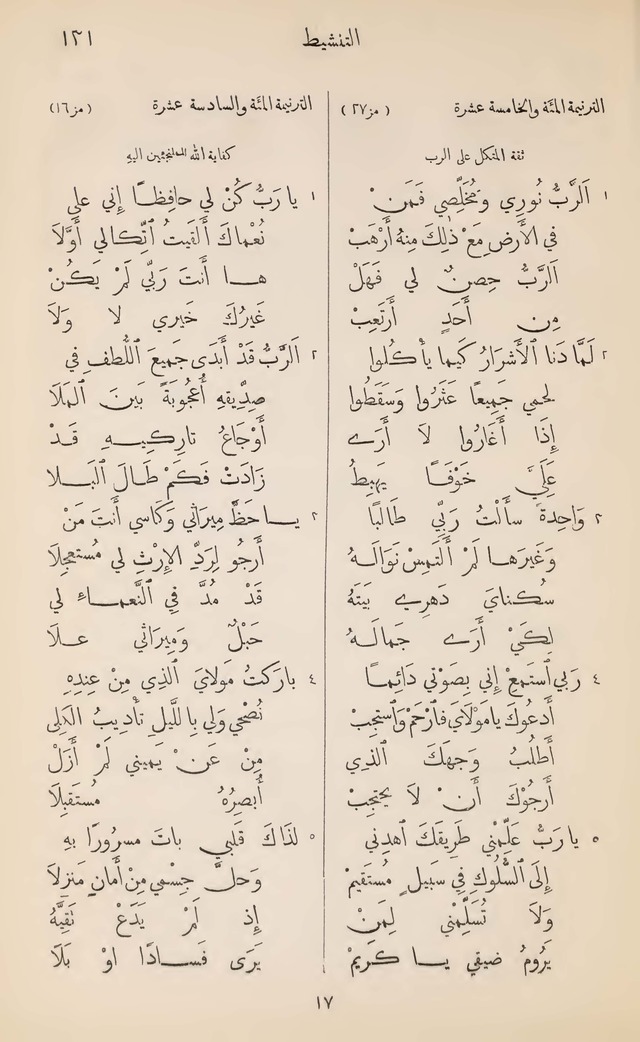 التنشيط ١٢١
الترنيمة المئة والخامسة عشرة (مز٢٧)
ثقة المتكل على الرب
١ اَلرَّبُّ نُورِي وَمُخَلِّصِي فَمَنْ
في الأَرضِ مَعْ ذٰلِكَ مِنهُ أَرْهَبْ
اَلرَّبُّ حِصنٌ لي فَهَلْ
مِن أَحَدٍ أَرتَعِبْ
٢ لَمَّا دَنا الأَشرَارُ كَيما يأكُلوا
لحمي جَمِيعًا عَثَرُوا وَسَقَطُوا
إِذَا أَغَارُوا لاَ أَرَے
عَلَيَّ خَوْفًا يَهبِطُ
٣ وَاحِدةً سأَلْتُ رَبِّي طَالبًا
وَغَيرَهـا لَمْ أَلتَمِسْ نَوَالَـهُ
سُكنايَ دَهرِے بَيتَهُ
لِكَيْ أَرَے جَمَالَـهُ
٤ رَبي اَستَمِعْ إِني بِصَوْتي دَائِمـا
أَدعُوكَ يامَوْلاَيَ فَارْحَمْ وَاَستَجِبْ
أَطلُبُ وَجهَكَ الَّذي
أَرجُوْكَ أَنْ لاَ يَحتَجِبْ
٥ يا رَبُّ عَلِّمْني طَرِيقَكَ اَهدِني
إِلَى اَلسُّلُوكِ فِي سَبِيلٍ مُستَقيمْ
وَلاَ تُسَلِّمْني لِمَنْ
يَرُومُ ضِيقي يـا كَرِيمْ
الترنيمة المئة والسادسة عشرة (مز١٦)
كفاية الله للملتجئين اليهِ
١ يا رَبُّ كُنْ لي حافِظـًا إِني علي
نُعْماكَ أَلقَيتُ اَتِّكالي أَوَّلاَ
هـا أَنتَ رَبِّي لَمْ يَكُنْ
غَيرُكَ خَيري لا وَلاَ
٢ اَلرَّبُّ قَدْ أَبدَى جَمِيعَ اَللُّطفِ في
صِدِّيقِهِ أُعجُوبَةً بَينَ اَلمَلاَ
أَوْجَاعُ تارِكِيـهِ قَـدْ
زَادَتْ فَكَمْ طَالَ اَلبَـلا
٣ يـا حَظَّ مِيرَاثي وَكَاسي أَنتَ مَنْ
أَرجُو لِرَدِّ الإِرْثِ لي مُستَعجِلاَ
قَدْ مُدَّ فِي اَلنَّعمـاءِ لي
حَبْلٌ وَمِيرَاثي عـلاَ
٤ بارَكتُ مَولايَ اَلَّذي مِنْ عِندِهِ
نُصْحي وَلي بِاللَّيلِ تأْدِيبُ اَلكِلَى
مِنْ عَنْ يَمِيني لَمْ أَزَلْ
أُبصِرُهُ مُستَقبِلاَ
٥ لذَاكَ قَلبي باتَ مسرُورًا بِهِ
وَحَلَّ جِسْمي مِنْ أَمانٍ مَنزِلاَ
إِذ لَمْ يَدَعْ تَقِيَّهُ
يَرَى فَسـادًا اوْ بَلاَ
١٧